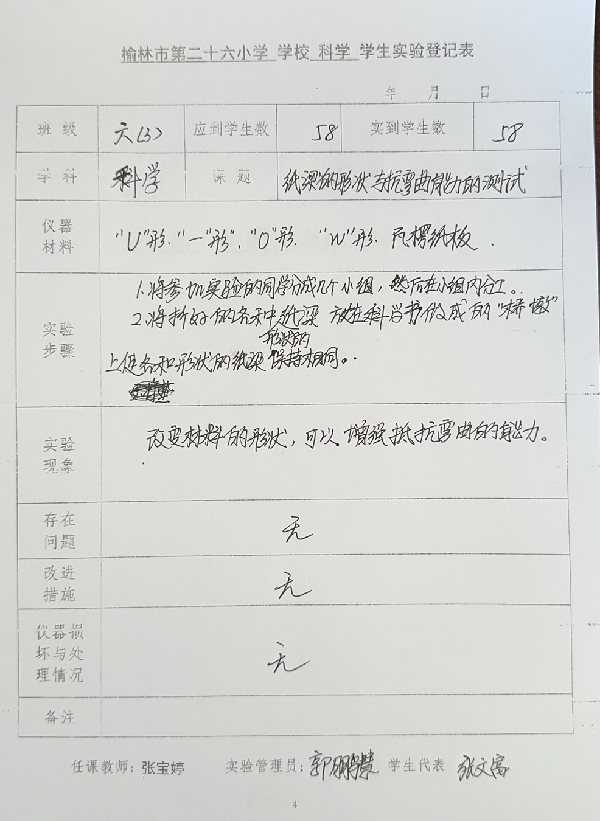 榆林市第二十六小学 学校 科学 学生实验登记表
年 月 日
班级 六(3) 应到学生数 58 实到学生数 58
学科 科学 课题 纸梁的形状与抗弯曲能力的测试
仪器材料 "U"形."一"形","O"形. "W"形. 瓦楞纸板.
实验步骤 1.将参加实验的同学分成几个小组,然后在小组内分工。
2.将折好的各种形状的纸梁 放在科学书做成的"桥墩"
上使各种形状的纸梁保持相同。
实验现象 改变材料的形状,可以增强抵抗弯曲的能力。
存在问题 无
改进措施 无
仪器损坏与处理情况 无
备注
任课教师: 张宝婷 实验管理员: 郭 学生代表 张文富
4